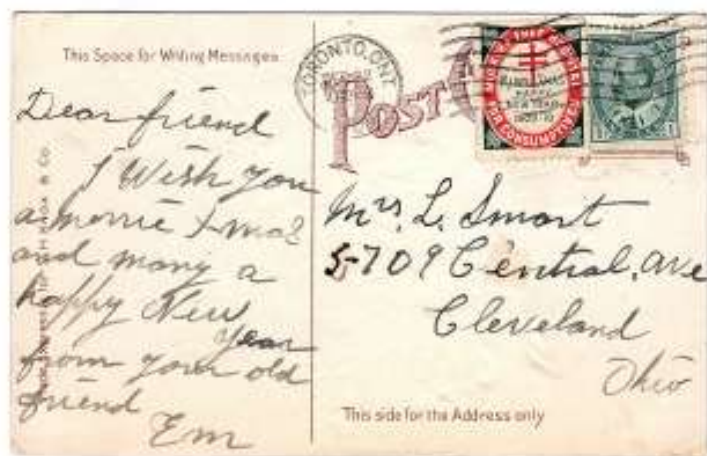 This Space for Writing Messages
Dear friend
I Wish you
a merrie Xmas
and many a
happy New
year
from your old
friend
Em
TORONTO, ONT
POST
FOR CONSUMPTIVES
HAPPY
NEW YEAR
Mrs. L. Smart
5709 Central, ave
Cleveland
Ohio
This side for the Address only